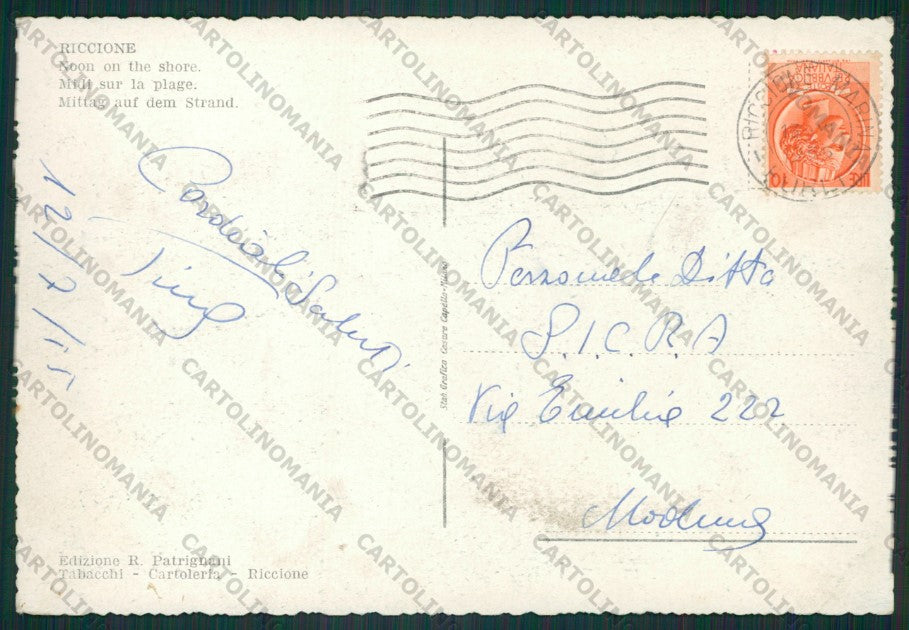 RICCIONE
Noon on the shore.
Midi sur la plage.
Mittag auf dem Strand.
Cordiali Saluti
Personale Ditta
S.I.C.R.A
Via Emilia 222
Modena
Stab. Grafico Cesare Capello - Milano
Edizione R. Patrignani
Tabacchi - Cartoleria Riccione
CARTOLINOMANIA